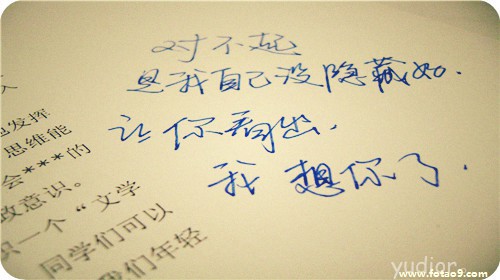 对不起
是我自己没隐藏好.
让你看出.
我想你了.
人
也发挥
思维能
会***的
政意识。
织一个“文学
同学们可以
我们年轻
yudior
www.fotao9.com